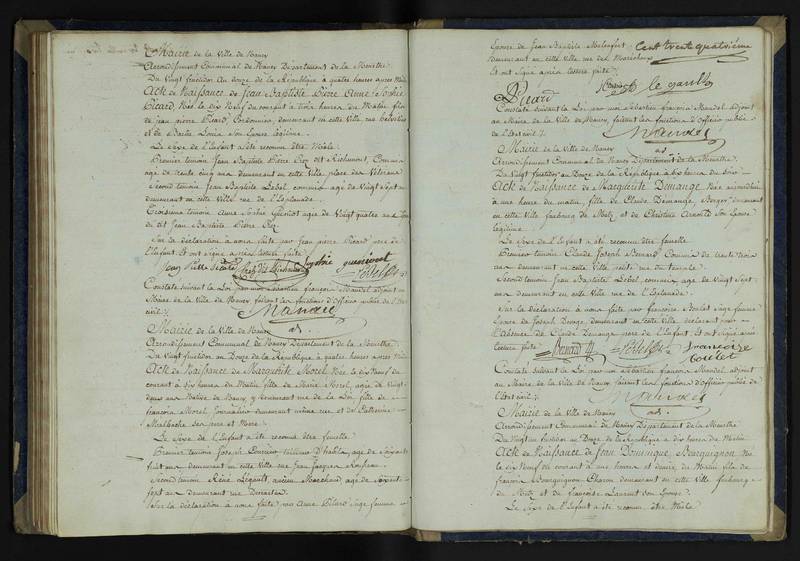 Mairie de la Ville de Nancy
Arrondissement Communal de Nancy Département de la Meurthe.
Du Vingt fructidor an douze de la République à quatre heures après Midi
Acte de Naissance de Jean Baptiste Pierre Anne Sophie
Picard, Née le dix Neuf du courant à trois heures du Matin fils
de jean pierre Picard, Cordonnier, demeurant en cette Ville rue
et de Louis son Epouse légitime.
Le Sexe de l'Enfant a été reconnu être Mâle.
Premier temoin Jean Baptiste Pierre Roy dit Richemont, Commis
age de trente cinq ans demeurant en cette Ville place des Vétérans
Second temoin Jean Baptiste Lebel commis age de Vingt Sept ans
demeurant en cette Ville rue de l'Esplanade.
Troisième temoin Anne Sophie agée de Vingt quatre ans
du dit Jean Baptiste Pierre Roy.
Sur la déclaration à nous faite par Jean pierre Picard pere de
l'Enfant Et ont signé après lecture faite
Jean Pierre Picard Sophie
Constaté suivant la Loi par moi Sébastien françois Mandel adjoint au
Maire de la Ville de Nancy faisant les fonctions d'Officier public de l'Etat
civil
Mandel
adj.
Mairie de la Ville de Nancy
Arrondissement Communal de Nancy Département de la Meurthe
Du Vingt fructidor an Douze de la République à quatre heures après Midi
Acte de Naissance de Marguerite Morel Née le dix Neuf du
courant à dix heures du Matin fille de Marie Morel, agée de Vingt
ans Native de Nancy y demeurant rue de la Loi, fille de
françois Morel Journalier demeurant même rue et de Catherine
ses pere et Mere.
Le Sexe de l'Enfant a été reconnu être femelle
Premier temoin Joseph tailleur d'habits, age de soixante
huit ans demeurant en cette Ville rue Jean Jacques Rousseau.
Second temoin René Légault, ancien Marechand age de soixante
sept ans demeurant rue Descartes.
Sur la déclaration à nous faite par Anne Sage femme
Epouse de Jean Baptiste Cent trente quatrième
demeurant en cette Ville rue des Maréchaux
Et ont signé après lecture faite
le gault
Picard
Constaté suivant la Loi par moi Sébastien françois Mandel adjoint
au Maire de la Ville de Nancy, faisant les fonctions d'Officier public
de l'Etat civil
Mandel
adj.
Mairie de la Ville de Nancy
Arrondissement Communal de Nancy Département de la Meurthe.
Du Vingt fructidor an Douze de la République à six heures du Soir
Acte de Naissance de Marguerite Demange Née aujourd'hui
à une heure du matin, fille de Claude Demange, Berger demeurant
en cette Ville faubourg de Metz et de Christine son Epouse
légitime
Le Sexe de l'Enfant a été reconnu être femelle
Premier temoin Claude Joseph Bernard Commis de trente trois
ans demeurant en cette Ville petite rue du
Second temoin Jean Baptiste Lebel commis, age de Vingt Sept
ans demeurant en cette Ville rue de l'Esplanade.
Sur la déclaration à nous faite par françoise Boulet Sage femme
Epouse de Joseph demeurant en cette Ville déclarant pour
l'Absence de Claude Demange pere de l'Enfant Et ont signé après
lecture faite Bernard Lebel françoise
boulet
Constaté suivant la Loi par moi Sébastien françois Mandel, adjoint
au Maire de la Ville de Nancy, faisant les fonctions d'Officier public de
l'Etat civil
Mandel
adj.
Mairie de la Ville de Nancy
Arrondissement Communal de Nancy Département de la Meurthe
Du Vingt un fructidor an Douze de la République à dix heures du Matin
Acte de Naissance de Jean Dominique Bourguignon Né
le dix Neuf du courant à une heure et demie du Matin fils de
françois Bourguignon Charon demeurant en cette Ville faubourg
de Metz et de françoise Laurent son Epouse
Le Sexe de l'Enfant a été reconnu être Mâle